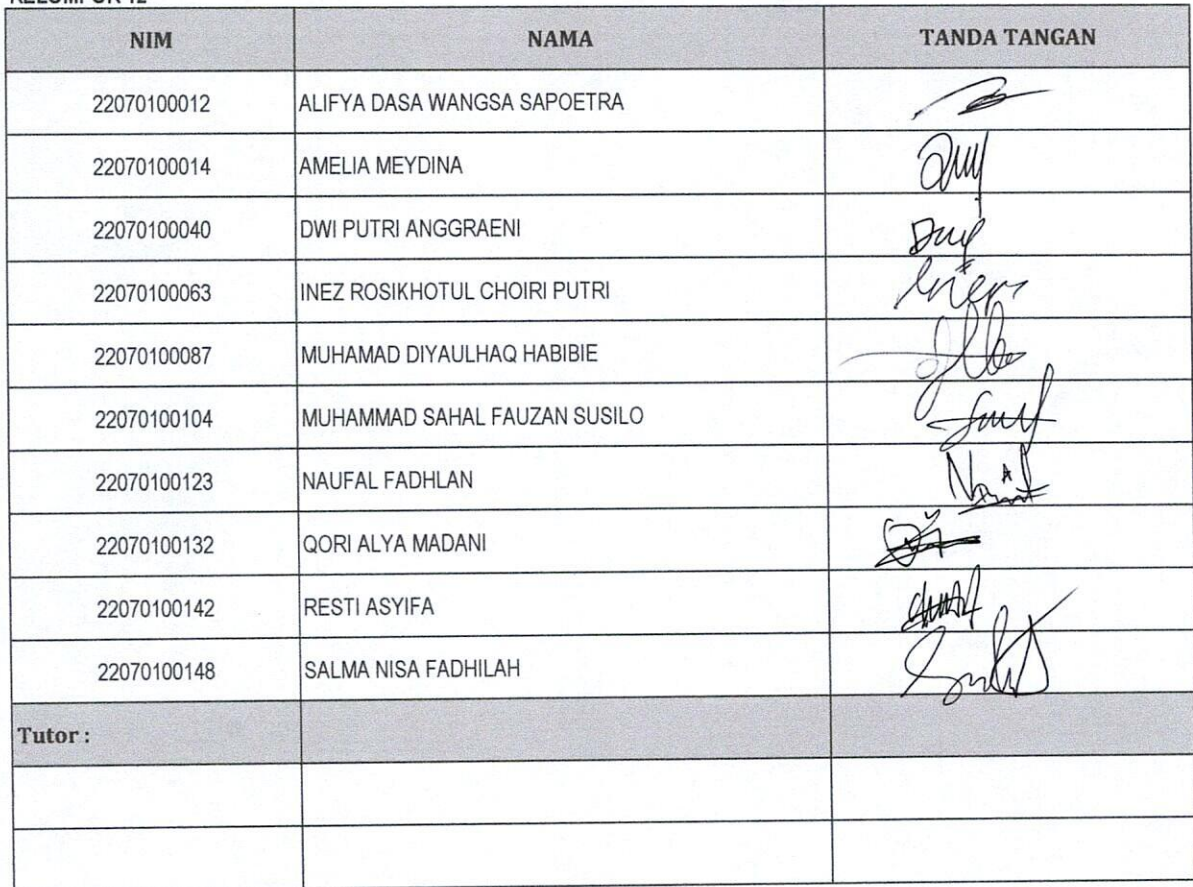 NIM NAMA TANDA TANGAN
22070100012 ALIFYA DASA WANGSA SAPOETRA
22070100014 AMELIA MEYDINA
22070100040 DWI PUTRI ANGGRAENI
22070100063 INEZ ROSIKHOTUL CHOIRI PUTRI
22070100087 MUHAMAD DIYAULHAQ HABIBIE
22070100104 MUHAMMAD SAHAL FAUZAN SUSILO
22070100123 NAUFAL FADHLAN
22070100132 QORI ALYA MADANI
22070100142 RESTI ASYIFA
22070100148 SALMA NISA FADHILAH
Tutor :